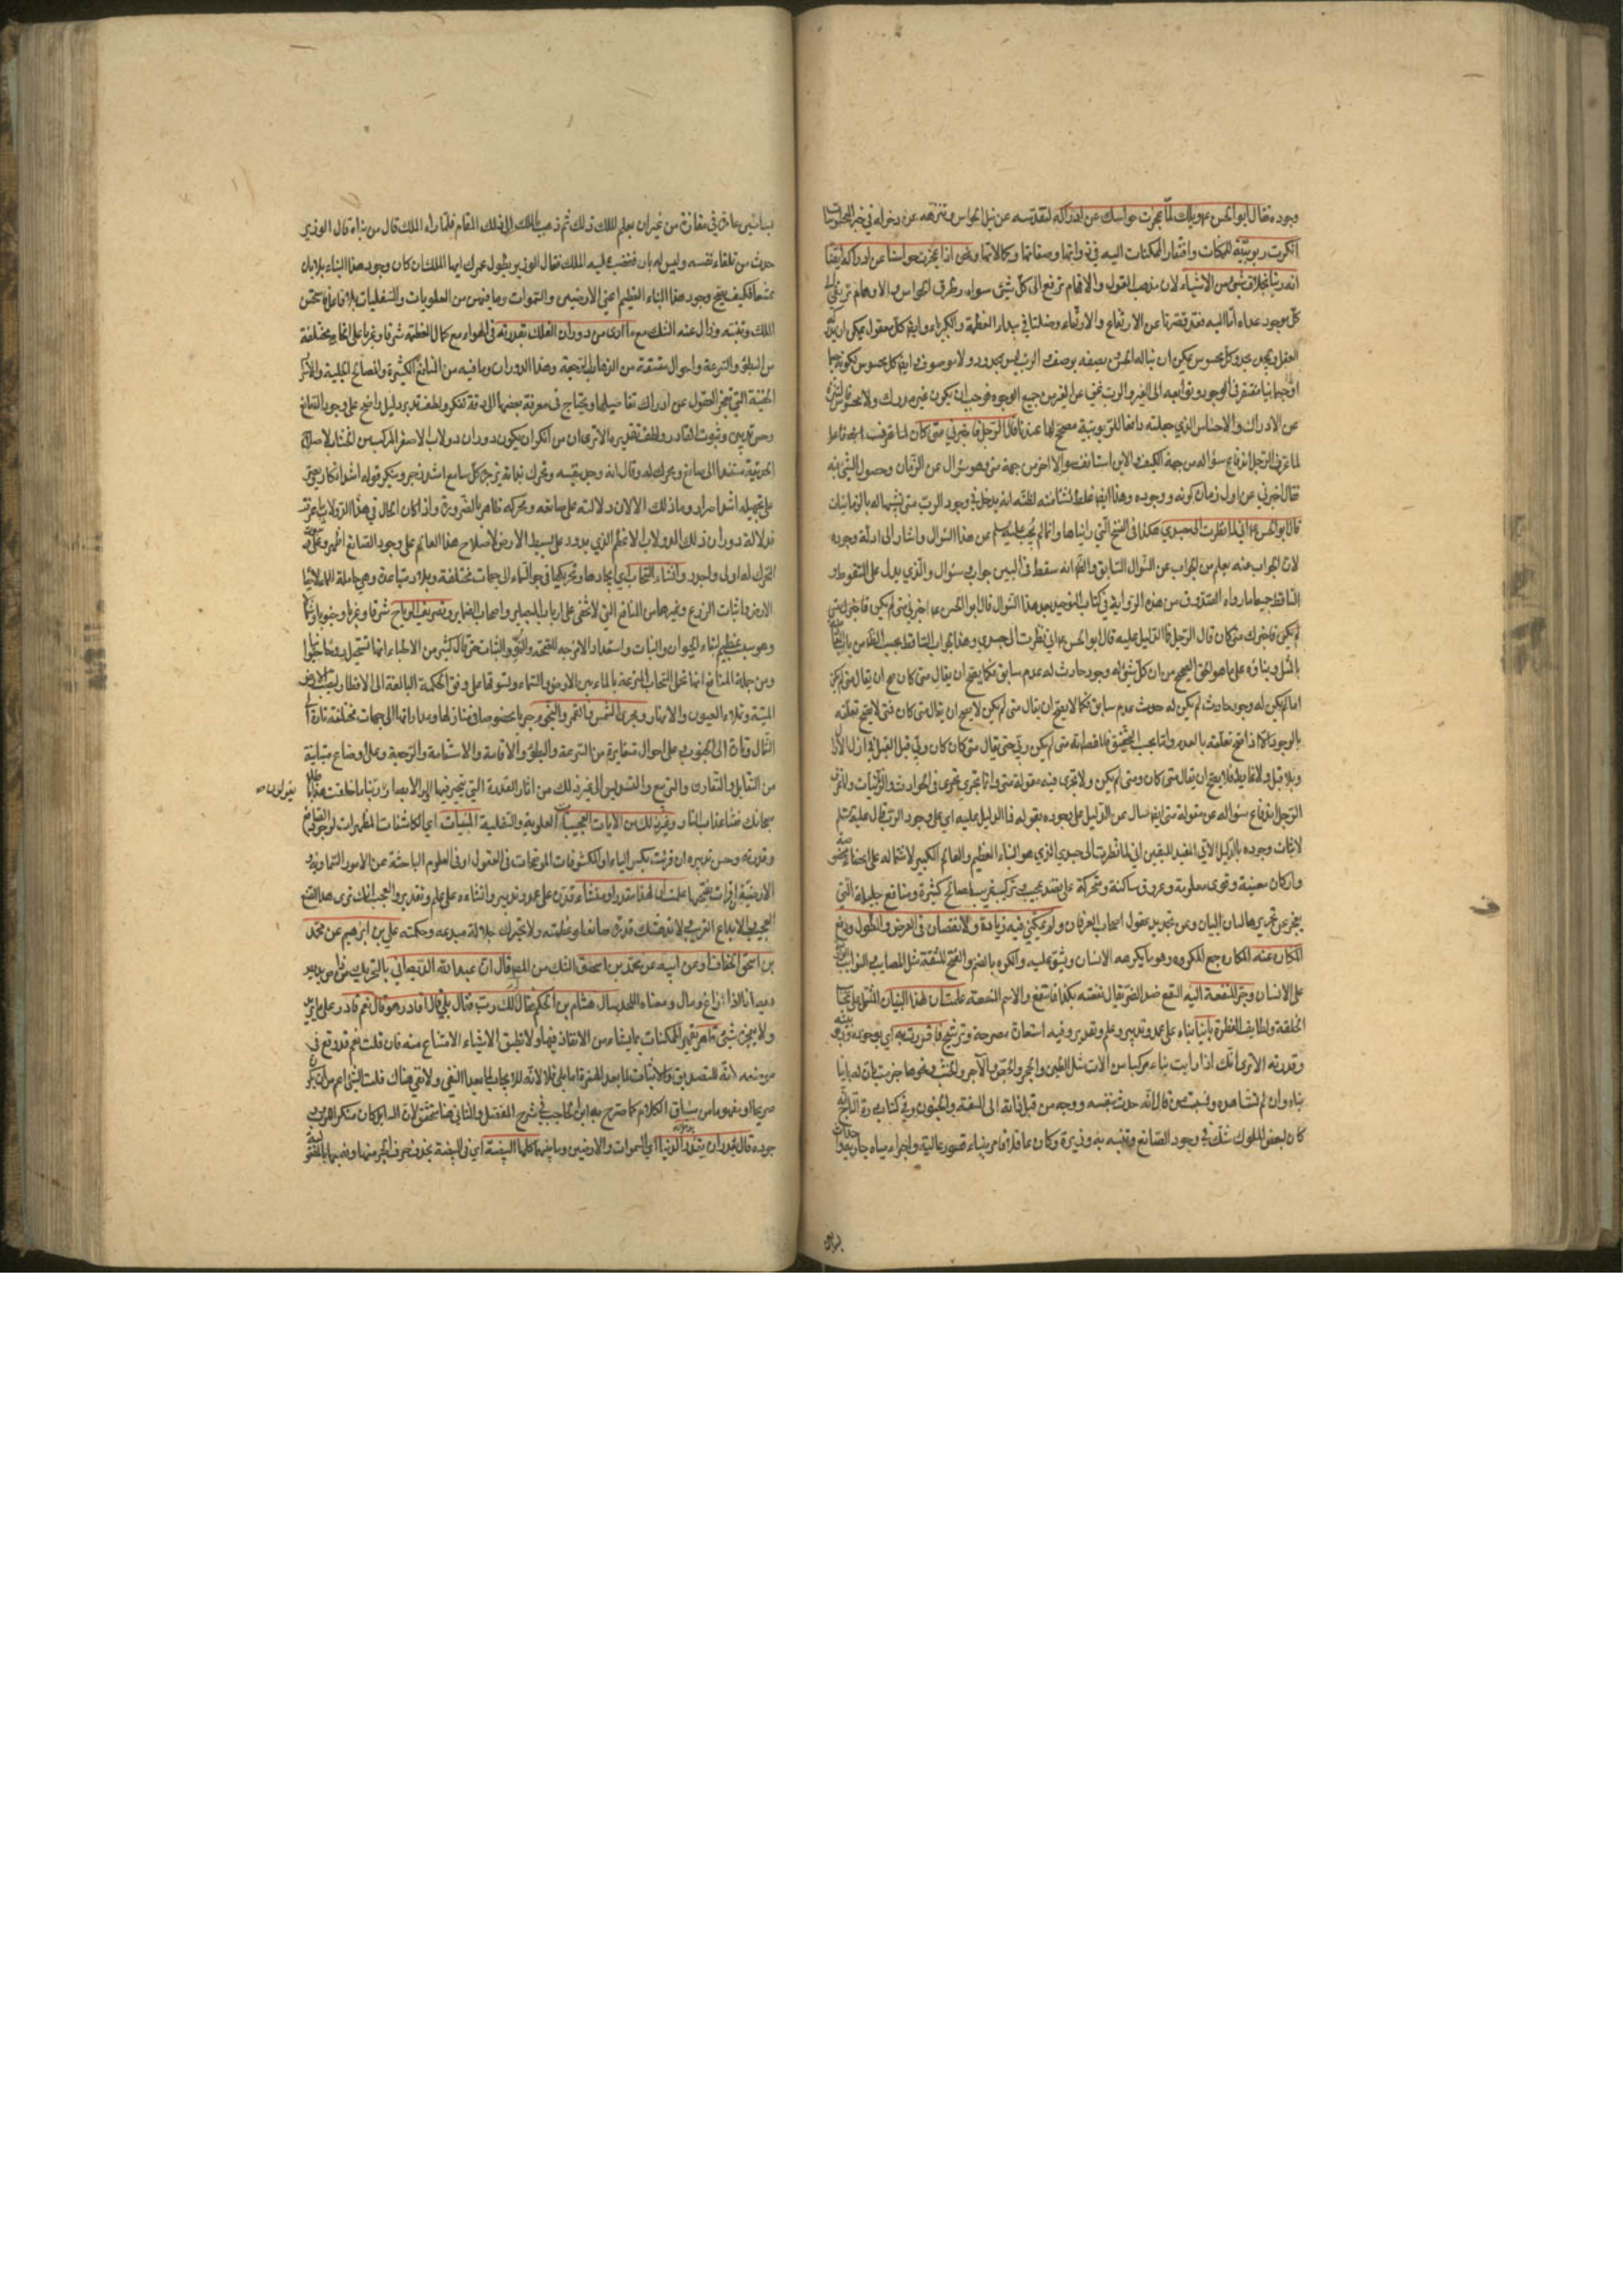 وجوده فقال ابو الحسن ع ويلك لمّا عجزت حواسك عن ادراكه لتقدّسه عن نيل الحواس وتنزّهه عن دخوله في
انكرت ربوبيّته للمكنات وافتقار الممكنات اليه في ذواتها وصفاتها وكمالاتها ونحن اذا عجزت حواسنا عن ادراكه ايقنا
انه ربنا بخلاف شيء من الاشياء لان مذهب العقول والافهام ترفع الى كلّ شيء سواه وطرق الحواس والاوهام
كلّ موجود عداه امّا اليه فقد قصرتا عن الارتفاع والارتقاء وضلتا في بيداء العظمة والكبرياء وايضا كلّ معقول يمكن ان
العقل ويجعل وكلّ محسوس يمكن ان يناله الحسّ ويصفه بوصف والرب ليس بمحدود ولا موصوف وايضا كل محسوس لكونه
مفتقر في الوجود وتوابعه الى الغير والرب غني عن الغير من جميع الوجوه فوجب ان يكون غير مدرك ولا محسوس
عن الادراك والاحساس الذي جعلته دافعا للربوبيّة مصحّح لها عندنا قال الرّجل فاخبرني متى كان لما عرفت
لما عرف الرّجل اندفاع سؤاله من جهة الكيف والاين استانف والاخر من جهة متى وهو سؤال عن الزّمان وحصول الشيء فيه
فقال اخبرني عن اول زمان كونه ووجوده وهذا ايضا غلط نشأ منه لظنّه انه يدخل في وجود الرب متى تشبيها له بالزمانيات
قال ابو الحسن ع اني لما نظرت الى جسدي هكذا في النسخ الّتي رايناها وانما لم يجب عليه السلم عن هذا السؤال واشار الى ادلة وجوده
لان الجواب عنه يعلم من الجواب عن السّؤال السّابق والظاهر انه سقط في البين جواب وسؤال والّذي يدل على السّقوط و
السّاقط جميعا ما رواه الصّدوق من هذه الرّواية في كتاب التوحيد بعد هذا السّوال قال ابو الحسن ع اخبرني متى لم يكن فاخبرك متى
لم يكن فاخبرك متى كان قال الرّجل فما الدّليل عليه قال ابو الحسن ع اني نظرت الى جسدي وهذا الجواب السّاقط بحسب الظاهر من باب
بالمثل وبناؤه على ما هو الحقّ الصحيح من ان كلّ شيء له وجود حادث له عدم سابق فكما يصح ان يقال متى كان صح ان يقال متى لم يكن
اما لم يكن له وجود حادث لم يكن له حدوث عدم سابق فكما لا يصح ان يقال متى لم يكن لا يصح ان يقال متى كان فمتى لا يصح تعلّقه
بالوجود الّا اذا صح تعلّقه بالعدم وانما يجب التحقيق فلما قصد انه متى لم يكن ربّي حتى يقال متى كان كان ربّي قبل القبل في ازل الازال
وبلا قبل ولا غاية فلا يصح ان يقال متى كان ومتى لم يكن ولا تجري فيه مقولة متى وانما تجري في الحوادث والزّمانيات ولما عرف
الرّجل اندفاع سؤاله عن مقولة متى ايضا سال عن الدّليل على وجوده بقوله فما الدليل عليه اي على وجود الرب قال عليه السّلم
لاثبات وجوده بالدّليل الاتي المفيد لليقين اني لما نظرت الى جسدي الذي هو البناء العظيم والعالم الكبير لاشتماله على اعضاء
واركان معينة وقوى معلومة وعروق ساكنة ومتحركة على نضد عجيب وتركيب غريب لمصالح كثيرة ومنافع جليلة الّتي
يعجز عن تحريرها لسان البيان وعن تحديد عقول اصحاب العرفان ولم يمكنّي فيه زيادة ولا نقصان في العرض والطّول ودفع
المكاره عنه المكاره جمع المكروه وهو ما يكرهه الانسان ويشق عليه والكره بالضم والفتح المشقّة مثل المصايب والنوايب
على الانسان وجرّ المنفعة اليه النفع ضد الضرّ يقال نفعته بكذا فانتفع والاسم المنفعة علمت ان لهذا البنيان المشتمل على
الخلقة ولطايف الفطرة بانيا بناه على عمد وتدبير وعلم وتقدير وفيه استعارة مصرحة وترشيح فاقررت به اي بوجوده
وقدرته الا ترى انّك اذا رايت بناء مركبا من الات مثل الطين والحجر والجصّ والآجر والخشب ونحوها جزمت بان له بانيا
بناه وان لم تشاهده ونسبت من قال انّه حدث بنفسه ووجد من قبل ذاته الى السفه والجنون وفي كتاب
كان لبعض الملوك شكّ في وجود الصّانع وتنبّه به وزيره وكان عاقلا فامر ببناء قصور عالية واجراء مياه جارية
بساتين
بساتين عامرة في مفازة من غير ان يعلم الملك ذلك ثم ذهب بالملك الى ذلك المقام فلما راه الملك قال من بناه قال الوزير
حدث من تلقاء نفسه وليس له بان فغضب عليه الملك فقال الوزير يطول عمرك ايها الملك ان كان وجود هذا البناء بلا بان
ممتنعا فكيف يصح وجود هذا البناء العظيم اعني الارضين والسّموات وما فيهنّ من العلويات والسّفليات بلا فاعل فاستحسن
الملك وتنبّه وزال عنه الشك مع ما ارى من دوران الفلك بقدرته في الهواء مع كمال العظمة شرقا وغربا على انحاء مختلفة
من البطؤ والسّرعة واحوال متّسقة من الذهاب والرّجعة وهذا الدوران وما فيه من المنافع الكثيرة والمصالح الجلية
الخفيّة التي تعجز العقول عن ادراك تفاصيلها ويحتاج في معرفة بعضها الى دقة تفكر ولطف تدبر دليل واضح على وجود الصّانع
وحسن تدبيره وثبوت القادر ولطف تقديره الا ترى ان من انكر ان يكون دوران دولاب الاصغر المركب من اخشاب لاصلاح
الحديقة مستندا الى صانع ومحرك له وقال انه وجد بنفسه وتحرك بذاته ينزجر كلّ سامع اشد زجر وينكر قوله اشد انكار
على تجهيله اشد اصرار وما ذلك الا لان دلالته على صانعه ومحركه ظاهر بالضّرورة واذا كان الحال في هذا الدولاب
فدلالة دوران ذلك الدولاب الاعظم الذي يدور على بسيط الارض لاصلاح هذا العالم على وجود الصّانع اظهر
المحرك له اولى واجدر وانشاء السّحاب اي ايجادها وتحريكها في جو السّماء الى جهات مختلفة وبلاد متباعدة وهي حاملة للماء
الارض وانبات الزرع وغيرهما من المنافع التي لا تخفى على ارباب البصاير واصحاب الضماير وتصريف الرياح شرقا وغربا وجنوبا وشمالا
وهو سبب عظيم لبقاء الحيوان والنبات واستعداد الامزجة للصّحة والنّمو والثبات حتّى قال كثير من الاطباء انها تستحيل
ومن جملة المنافع انها تحمل السّحاب المترعة بالماء بين الارض والسّماء وتسوقها على وفق الحكمة البالغة الى الاقطار
الميّتة وتملاء العيون والانهار ومجرى الشّمس والقمر والنّجوم وجريا مخصوصا في منازلها ومداراتها الى جهات مختلفة تارة الى
الشّمال وتارة الى الجنوب على احوال متغايرة من السّرعة والبطؤ والاقامة والاستقامة والرّجعة وعلى اوضاع متباينة
من التقابل والتّقارن والتربيع والتسديس الى غير ذلك من اثار القدرة التي يتحير فيها اولو الابصار ربّنا ما خلقت هذا باطلا
يقولون
سبحانك فقنا عذاب النار وغير ذلك من الايات العجيبات العلوية والسّفلية المبيّنات اي الكاشفات المظهرات لوجود الصّانع
وقدرته وحسن تدبيره ان قرئت بكسر الياء او المكشوفات الموضّحات في العقول او في العلوم الباحثة عن الامور السّماوية و
الارضيّة ان قرات بفتحها علمت ان لهذا مقدرا ومنشئا قدره على عمد وتدبير وانشاءه على علم وتقدير والعجب انك ترى هذا الصنع
العجيب والابداع الغريب ولا تدهشك قدرة صانعها وعظمته ولا يحيّرك جلالة مبدعه وحكمته علي بن ابراهيم عن محمّد
بن اسحق الخفّاف او عن ابيه عن محمّد بن اسحق الشك من المص قال انّ عبد الله الديصاني بالتحريك
ديصانا اذا زاغ ومال ومعناه الملحد سال هشام بن الحكم فقال الك رب فقال بلى قال اقادر هو قال نعم قادر
ولا يعجزه شيء قاهر يقهر الممكنات بما يشاء من الانفاذ فيها ولا تطيق الاشياء الامتناع منه فان قلت نعم قد وقع في
موضعه لانّه للتصديق والاثبات لما بعد الهمزة واما بلى فلا لانّه للايجاب لما بعد النفي ولا نفي هناك قلت النّفي اعم من ان يكون
صريحا او مفهوما من سياق الكلام كما صرّح به ابن الحاجب في شرح المفصّل والثاني هنا متحقّق لان السايل كان منكرا لوجود الرب
قال يقدر ان يدخل الدّنيا اي السموات والارضين وما بينهما كلها البيضة اي في البيضة بحذف حرف الجر منها ونصبها